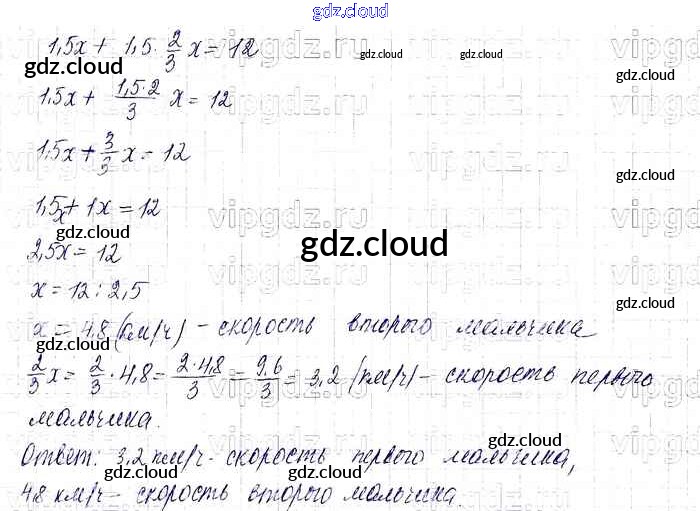 gdz.cloud
1,5x + 1,5 · 2/3 x = 12
gdz.cloud gdz.cloud gdz.cloud
1,5x + 1,5·2/3 x = 12
vipgdz.ru
gdz.cloud
1,5x + 3/3 x = 12
gdz.cloud
1,5x + 1x = 12
gdz.cloud
2,5x = 12
gdz.cloud
x = 12 : 2,5
gdz.cloud
x = 4,8 (км/ч) - скорость второго мальчика
gdz.cloud
2/3 x = 2/3 · 4,8 = 2·4,8/3 = 9,6/3 = 3,2 (км/ч) - скорость первого
мальчика.
gdz.cloud
Ответ: 3,2 км/ч - скорость первого мальчика,
gdz.cloud
4,8 км/ч - скорость второго мальчика.
gdz.cloud